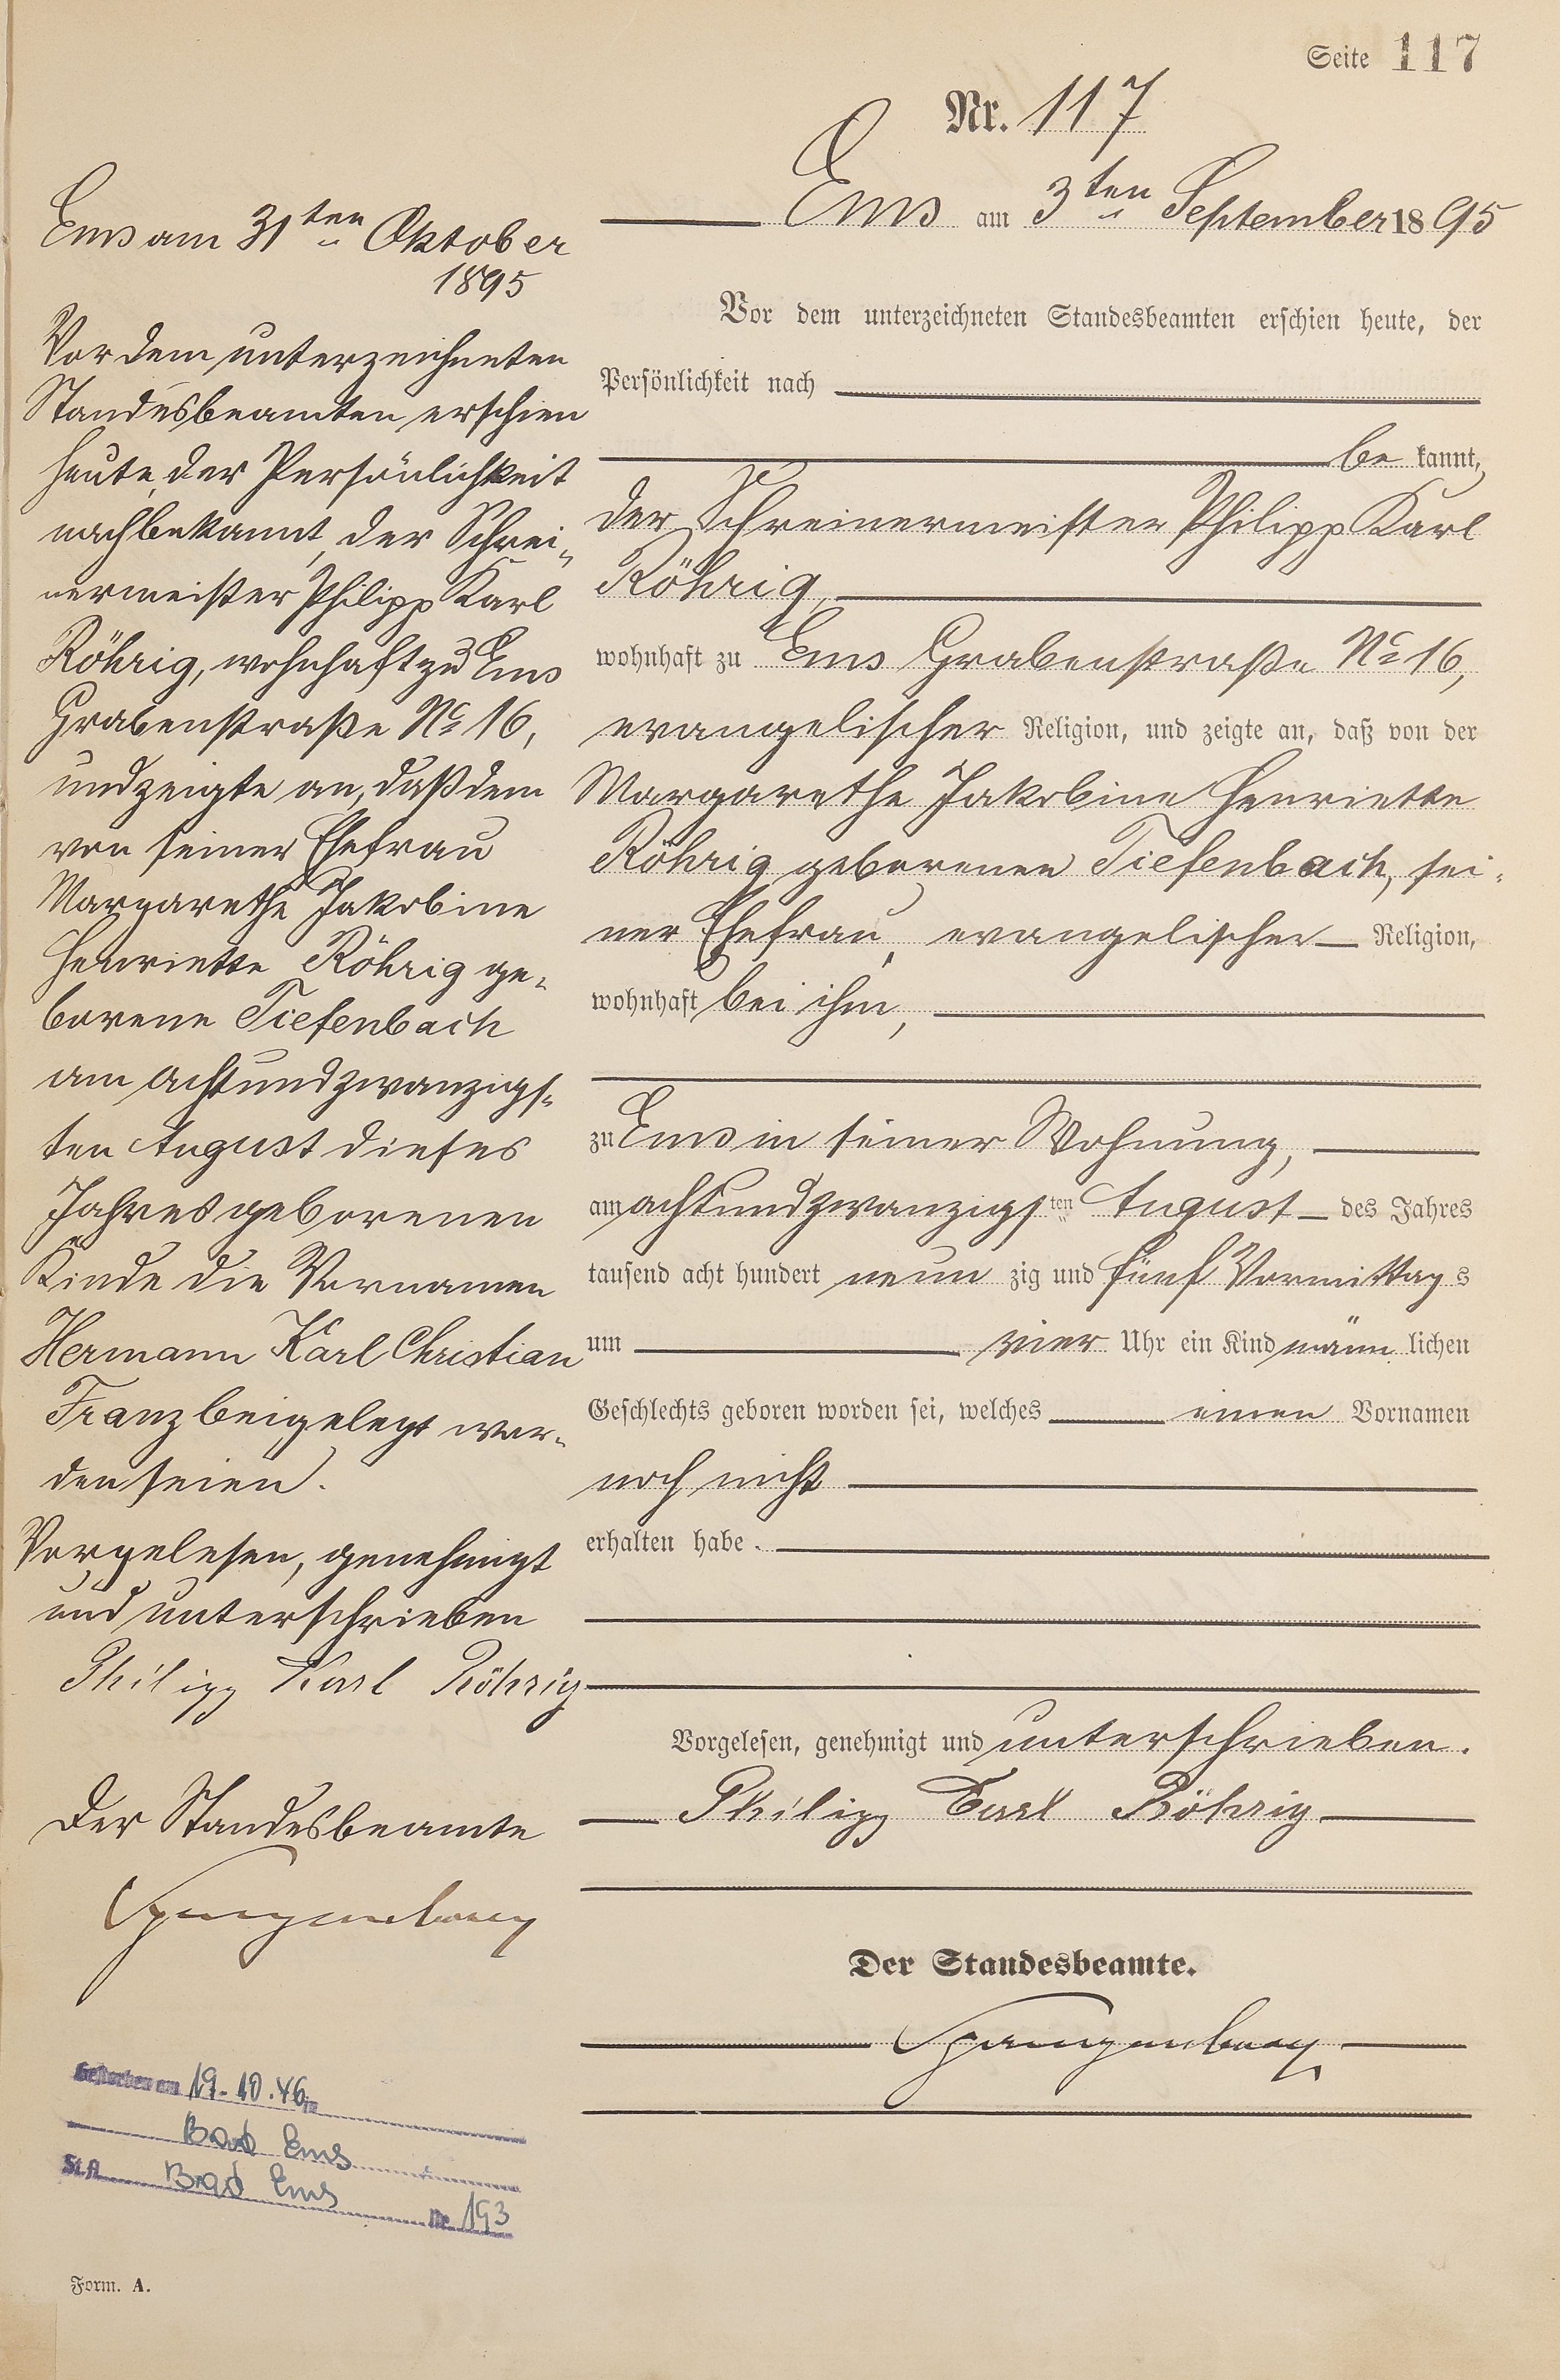 Seite 117
Nr. 117
Ems am 3ten September 1895
Vor dem unterzeichneten Standesbeamten erschien heute, der
Persönlichkeit nach
be kannt,
der Schreinermeister Philipp Karl
Röhrig,
wohnhaft zu Ems Grabenstraße No 16,
evangelischer Religion, und zeigte an, daß von der
Margarethe Jakobine Henriette
Röhrig geborenen Tiefenbach, sei-
ner Ehefrau, evangelischer Religion,
wohnhaft bei ihm,
zu Ems in seiner Wohnung,
am achtundzwanzigsten August des Jahres
tausend acht hundert neun zig und fünf Vormittags
um vier Uhr ein Kind männ lichen
Geschlechts geboren worden sei, welches einen Vornamen
noch nicht
erhalten habe.
Vorgelesen, genehmigt und unterschrieben.
Philipp Karl Röhrig
Der Standesbeamte.
Spangenberg
Ems am 31ten Oktober
1895
Vor dem unterzeichneten
Standesbeamten erschien
heute, der Persönlichkeit
nach bekannt, der Schrei-
nermeister Philipp Karl
Röhrig, wohnhaft zu Ems
Grabenstraße No 16,
und zeigte an, daß dem
von seiner Ehefrau
Margarethe Jakobine
Henriette Röhrig ge-
borene Tiefenbach
am achtundzwanzigs-
ten August dieses
Jahres geborenen
Kinde die Vornamen
Hermann Karl Christian
Franz beigelegt wor-
den seien.
Vorgelesen, genehmigt
und unterschrieben
Philipp Karl Röhrig
Der Standesbeamte
Spangenberg
Gestorben am 19.10.46 in
Bad Ems
St.A. Bad Ems Nr. 193
Form. A.